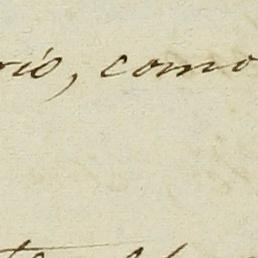 rio, como